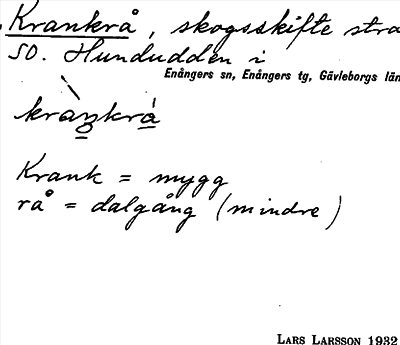 Krankrå, skogsskifte stra
SO. Hundudden i
Enångers sn, Enångers tg, Gävleborgs län
kràŋkrá
Krank = mygg
rå = dalgång (mindre)
LARS LARSSON 1932